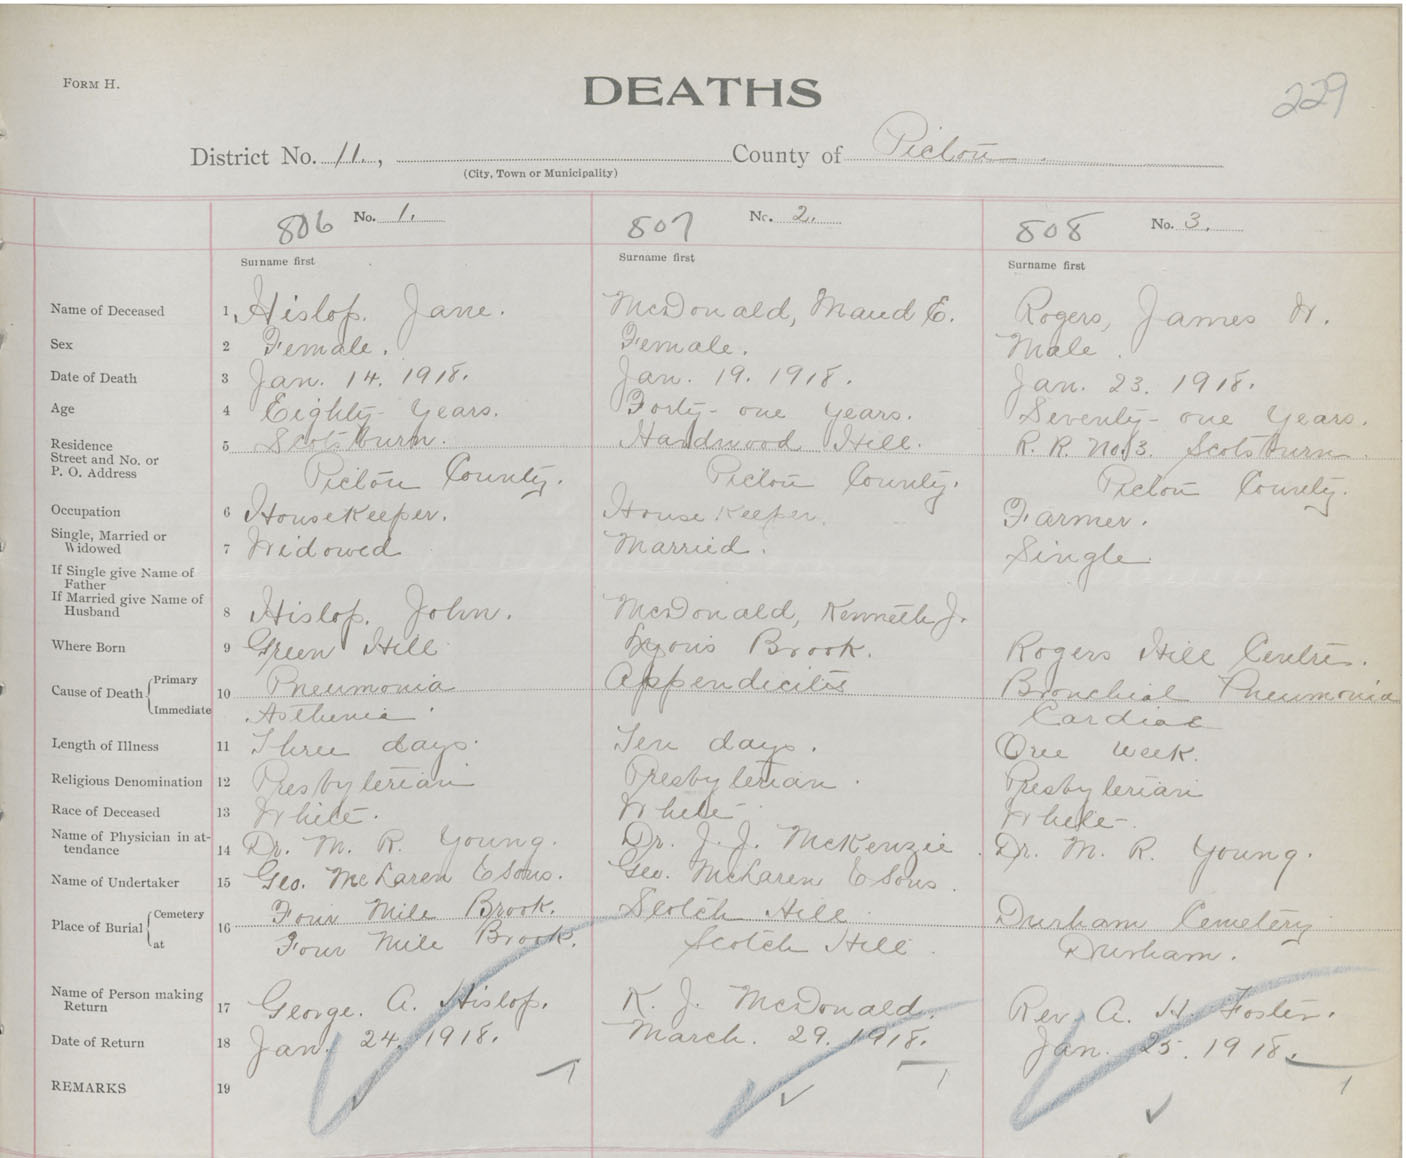 FORM H.
DEATHS
229
District No. 11. , County of Pictou
(City, Town or Municipality)
806 No. 1. 807 No. 2. 808 No. 3.
Surname first Surname first Surname first
Name of Deceased 1 Hislop, Jane. McDonald, Maud E. Rogers, James W.
Sex 2 Female. Female. Male.
Date of Death 3 Jan. 14. 1918. Jan. 19. 1918. Jan. 23. 1918.
Age 4 Eighty- Years. Forty- one Years. Seventy- one Years.
Residence 5 Scotsburn. Hardwood Hill. R. R. No. 3. Scotsburn
Street and No. or
P. O. Address Pictou County. Pictou County. Pictou County.
Occupation 6 Housekeeper. House Keeper. Farmer.
Single, Married or
Widowed 7 Widowed Married. Single
If Single give Name of
Father
If Married give Name of
Husband 8 Hislop, John. McDonald, Kenneth J.
Where Born 9 Green Hill Lyons Brook. Rogers Hill Centre.
Cause of Death Primary 10 Pneumonia Appendicitis Bronchial Pneumonia
Immediate Asthenia Cardiac
Length of Illness 11 Three days. Ten days. One week.
Religious Denomination 12 Presbyterian Presbyterian. Presbyterian
Race of Deceased 13 White. White White.
Name of Physician in at-
tendance 14 Dr. M. R. Young. Dr. J. J. McKenzie Dr. M. R. Young.
Name of Undertaker 15 Geo. McLaren & Sons. Geo. McLaren & Sons.
Place of Burial Cemetery 16 Four Mile Brook. Scotch Hill Durham Cemetery
at Four Mile Brook. Scotch Hill. Durham.
Name of Person making
Return 17 George. A. Hislop. K. J. McDonald. Rev. A. H. Foster.
Date of Return 18 Jan. 24. 1918. March. 29. 1918. Jan. 25. 1918.
REMARKS 19